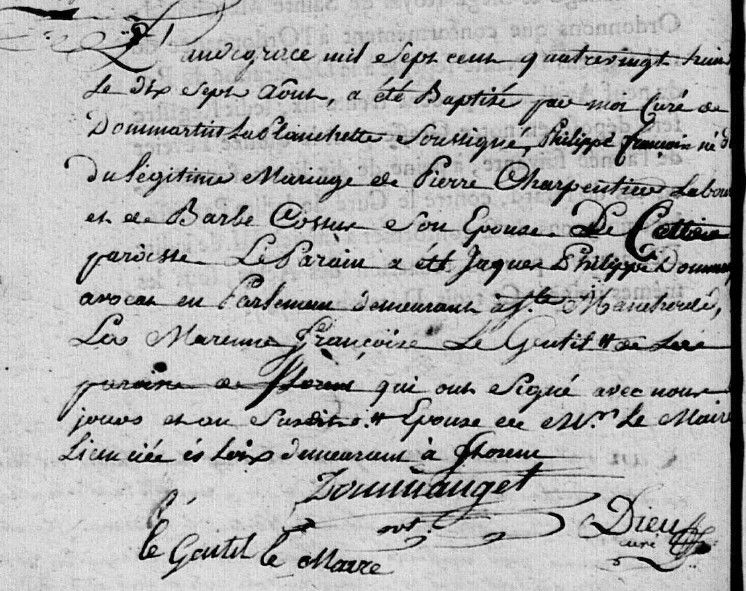 L'an de grace mil sept cent quatrevingt huit
Le dix sept Aout, a été Baptisé par moi Curé de
Dommartin La Planchette Soussigné, Philippe françois né d
du légitime Mariage de Pierre Charpentier Labour
et de Barbe Cossus Son Epouse De Cette
paroisse Le Parain a été Jaques Philippe Domm
avocat en Parlement demeurant à Ste Manehould,
La Marenne Françoise Le Gentil # de
paroisse de florent qui ont Signé avec nous
jours et an Susdits. # Epouse de Mr. Le Maire
Licenciée és Loix demeurant à florent
Dommanget
avt.
Dieu
curé
le Gentil le Maire